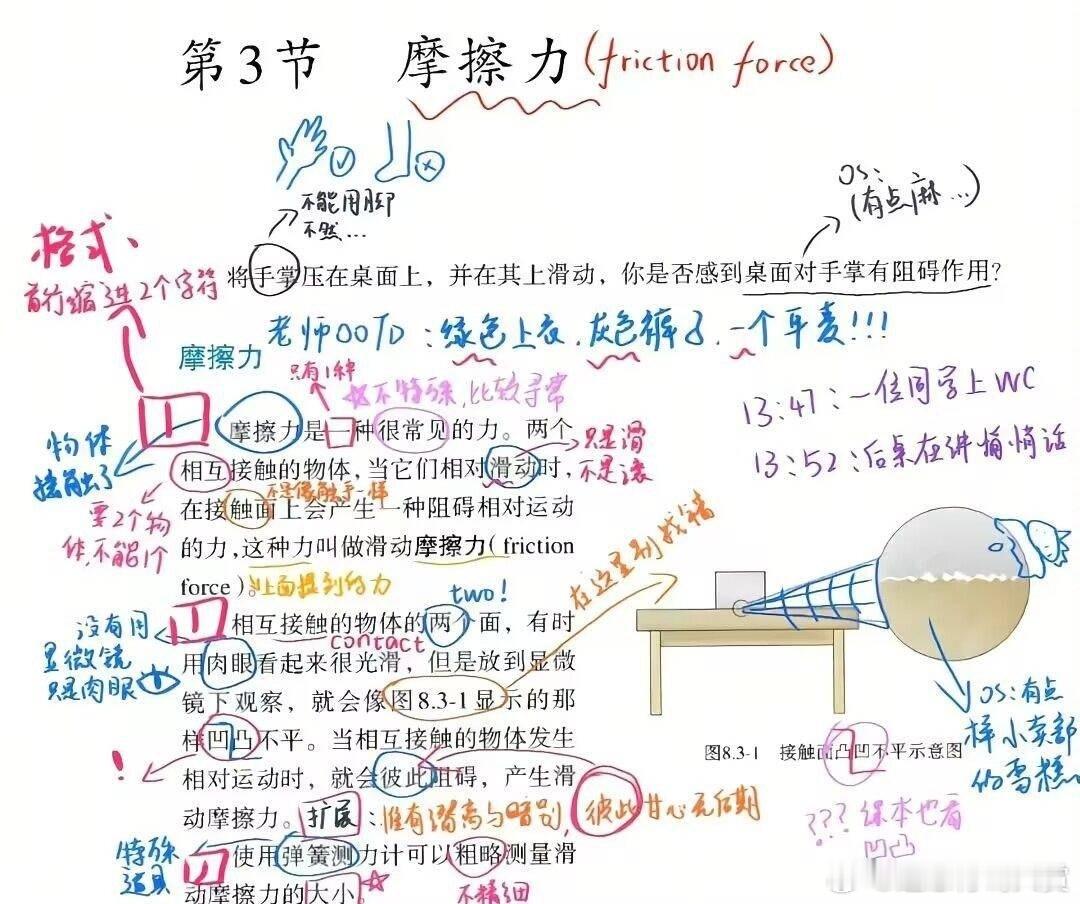 第3节 摩擦力(friction force)
不能用脚
不然...
OS:
(有点麻...)
格式、
首行缩进2个字符
将手掌压在桌面上，并在其上滑动，你是否感到桌面对手掌有阻碍作用？
老师OOTD：绿色上衣.灰色裤子.一个耳麦!!!
摩擦力
只有1种
☆不特殊,比较寻常
13:47：一位同学上WC
13:52：后桌在讲悄悄话
物体
接触了
摩擦力是一种很常见的力。两个
只是滑
不是滚
相互接触的物体，当它们相对滑动时，
要2个物
体,不能1个
在接触面上会产生一种阻碍相对运动
的力，这种力叫做滑动摩擦力(friction
force)。
上面提到的力
在这里别找错
two!
没有用
显微镜
只是肉眼
相互接触的物体的两个面，有时
contact
用肉眼看起来很光滑，但是放到显微
镜下观察，就会像图8.3-1显示的那
样凹凸不平。当相互接触的物体发生
!
相对运动时，就会彼此阻碍，产生滑
动摩擦力。
扩展：惟有潜离与暗别,彼此甘心无后期
特殊
道具
使用弹簧测力计可以粗略测量滑
动摩擦力的大小。
不精细
图8.3-1 接触面凸凹不平示意图
OS:有点
样小卖部
的雪糕。
???课本也看
凹凸